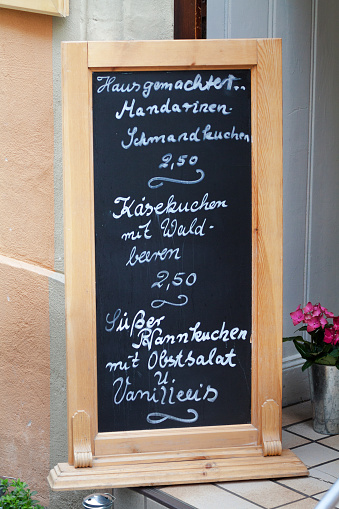 Hausgemachter..
Mandarinen-
Schmandkuchen
2,50
Käsekuchen
mit Wald-
beeren
2,50
Süßer
Pfannkuchen
mit Obstsalat
u
Vanilleeis